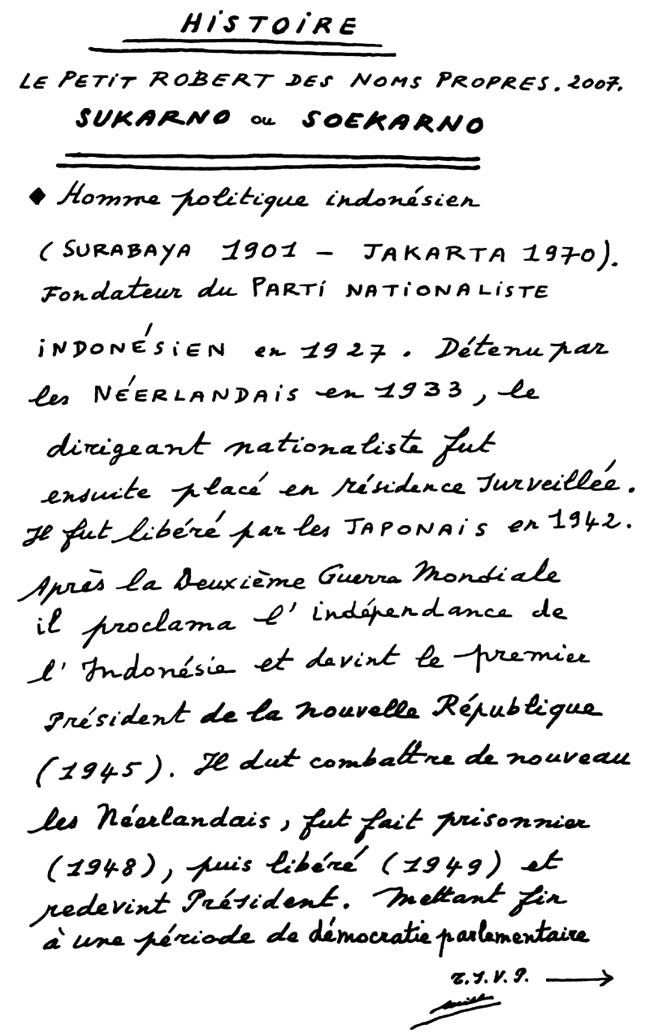 HISTOIRE
LE PETIT ROBERT DES NOMS PROPRES. 2007.
SUKARNO ou SOEKARNO
◆ Homme politique indonésien
(SURABAYA 1901 - JAKARTA 1970).
Fondateur du PARTI NATIONALISTE
INDONÉSIEN en 1927. Détenu par
les NÉERLANDAIS en 1933, le
dirigeant nationaliste fut
ensuite placé en résidence surveillée.
Il fut libéré par les JAPONAIS en 1942.
Après la Deuxième Guerre Mondiale
il proclama l'indépendance de
l'Indonésie et devint le premier
Président de la nouvelle République
(1945). Il dut combattre de nouveau
les Néerlandais, fut fait prisonnier
(1948), puis libéré (1949) et
redevint Président. Mettant fin
à une période de démocratie parlementaire
T.S.V.P. →